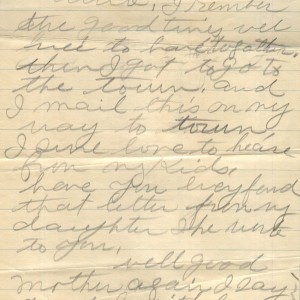 I rember
the good times wel
use to have togather.
then I got to go to
the town. and
I mail this on my
way to town,
I sure love to heare
from my kids.
have you
that letter from my
daughter she wrote
to you.
well good
Mother again I say